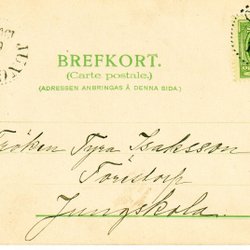 BREFKORT.
(Carte postale.)
(ADRESSEN ANBRINGAS Å DENNA SIDA.)
Fröken Tyra Isaksson
Förestorp
Ljungskola.